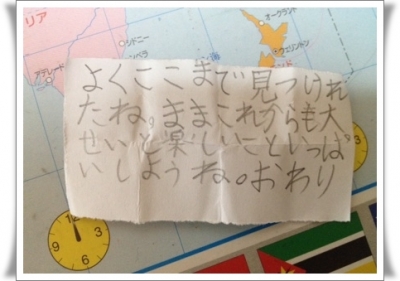 リア
シドニー
アデレード
オークランド
ウェリントン
よくここまで見つけれ
たね。ままこれからも大
せいと楽しいこといっぱ
いしようね。おわり